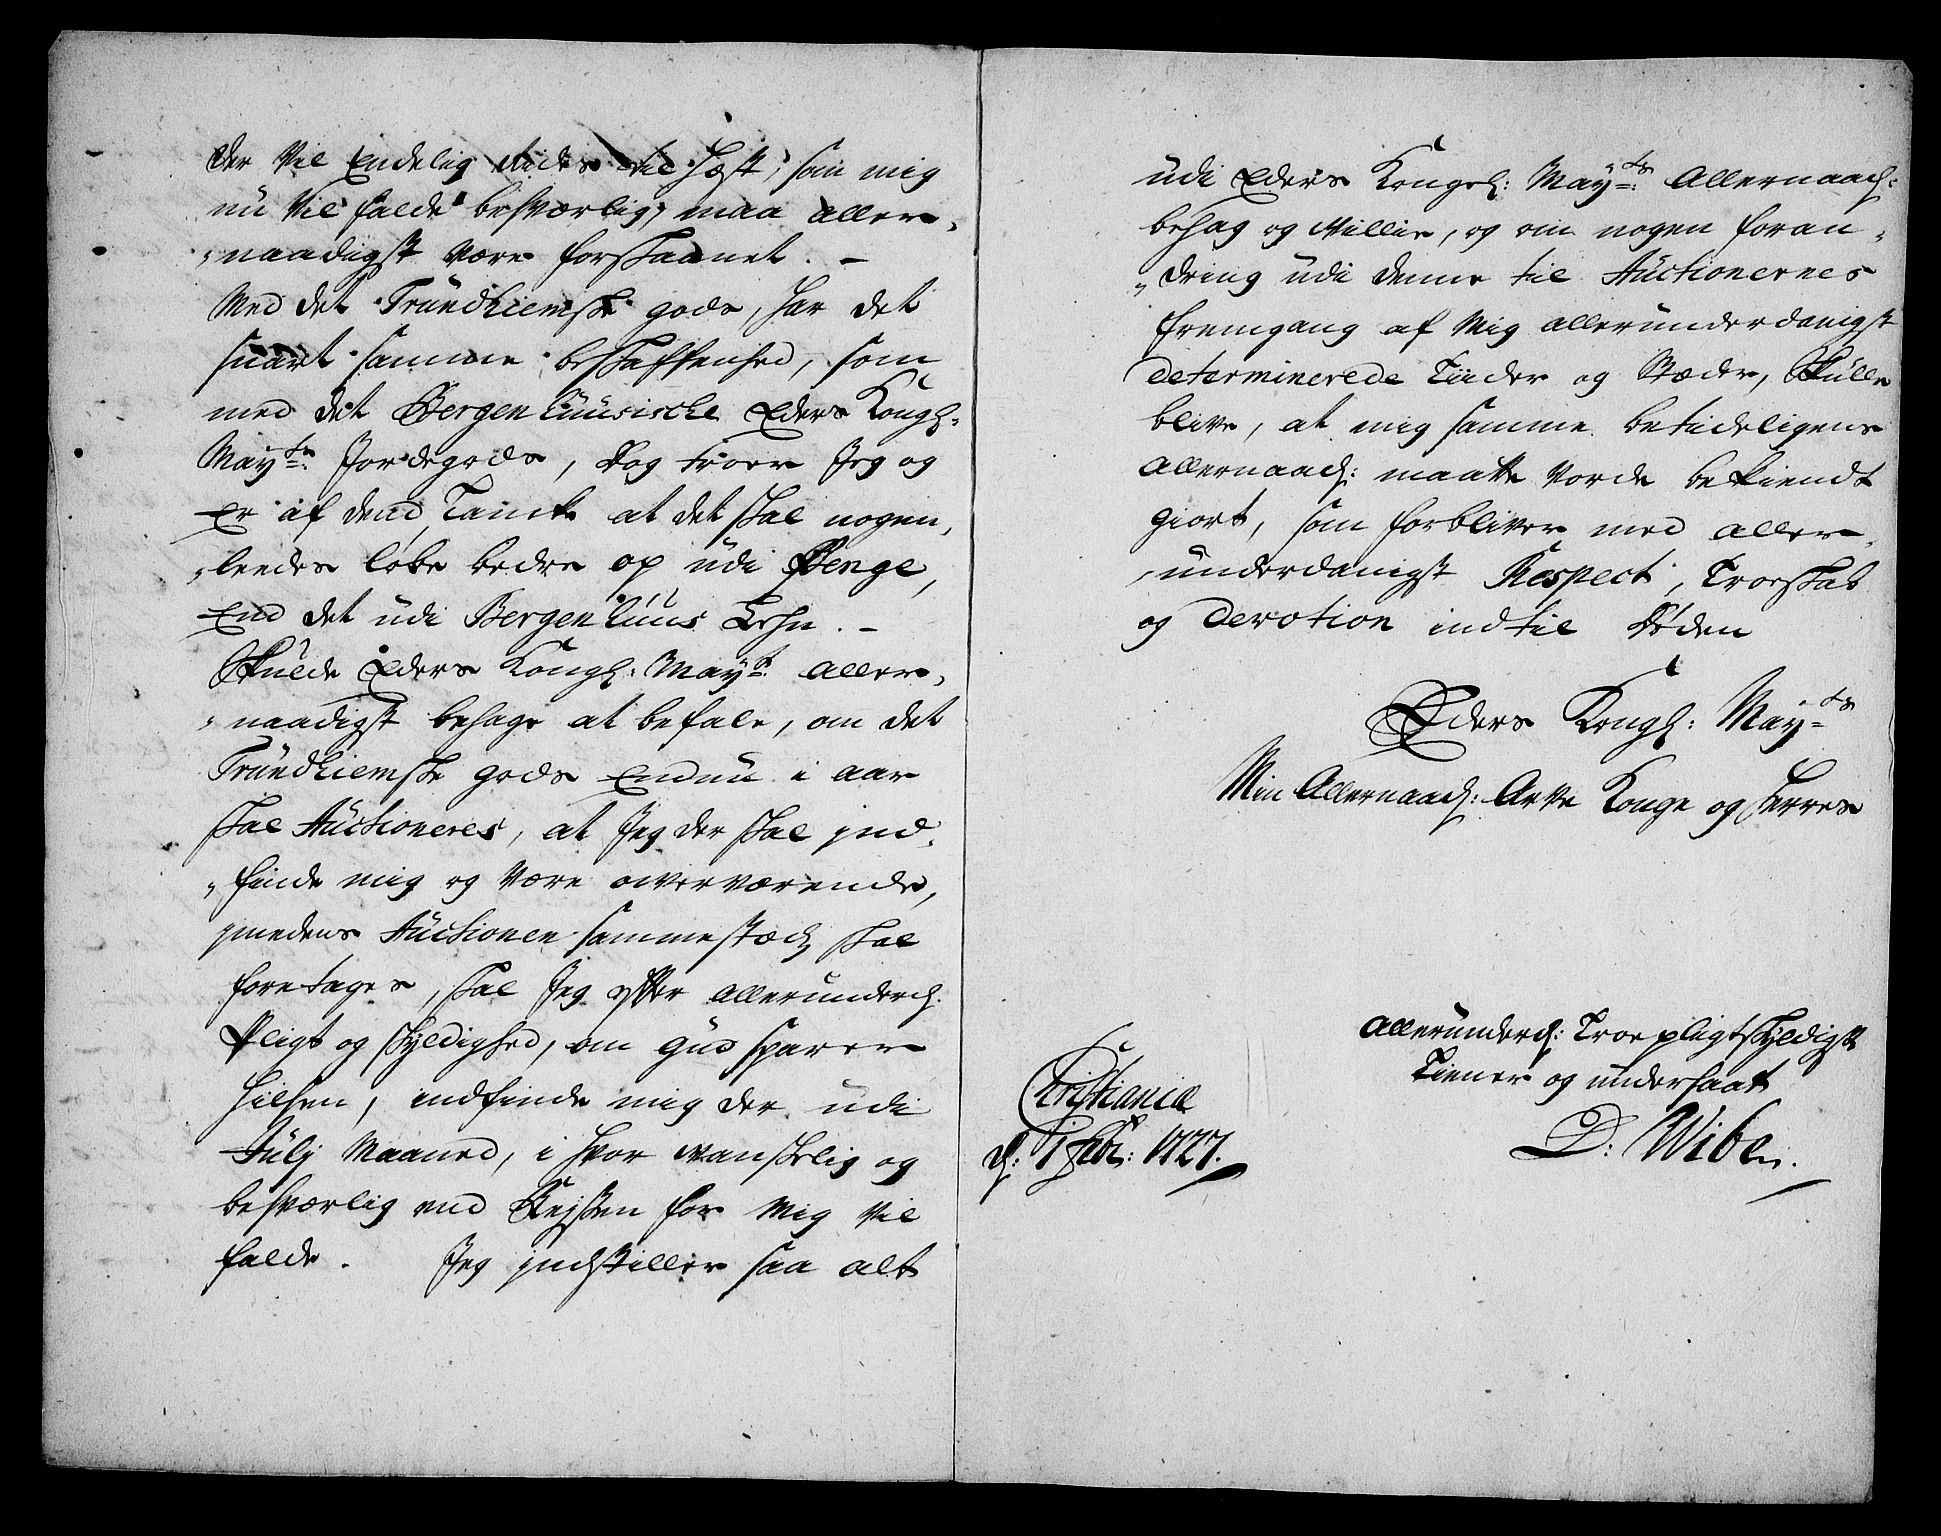 der vil Endelig rides til Hest, som mig
nu vil falde besværlig, maa aller-
naadigst være forskaanet. -
Med det Trundhiemske gods, har det
snart samme beskaffenhed, som
med det Bergenhuusische Eders Kongl:
Mayts: Jordegods, Dog troer Jeg og
Er af dend Tancke at det skal nogen-
leedes løbe bedre op udi Penge,
End det udi Bergenhuus Lehn. -
Skulde Eders Kongl: Mayt: aller-
naadigst behage at befale, om det
Trundhiemske gods Endnu i aar
skal Auctioneres, at Jeg der skal ind-
finde mig og være overværende,
imedens Auctionen sammestæd skal
foretages, skal Jeg efter allerunderd:
Pligt og skyldighed, om Gud sparer
Hilsen, indfinde mig der udi
Julj Maaned, i hvor vanskelig og
besværlig end Rejsen for Mig vil
falde. Jeg indstiller saa alt
udi Eders Kongel: Mayts: Allernaad:
behag og Villie, og om nogen foran-
dring udi denne til Auctionernes
fremgang af Mig allerunderdanigst
determinerede Tiider og Stæder, skulle
blive, at mig samme betideligens
allernaad: maatte vorde bekiendt
giort, som forbliver med aller-
underdanigst Respect, Troeskab
og Devotion indtil Døden
Eders Kongl: Mayts
Min Allernaad: Arve Konge og Herres
allerunderd: Troe pligtskyldigste
Tiener og undersaat
D: Wibe.
Christiania
d: 1 Febr: 1727.